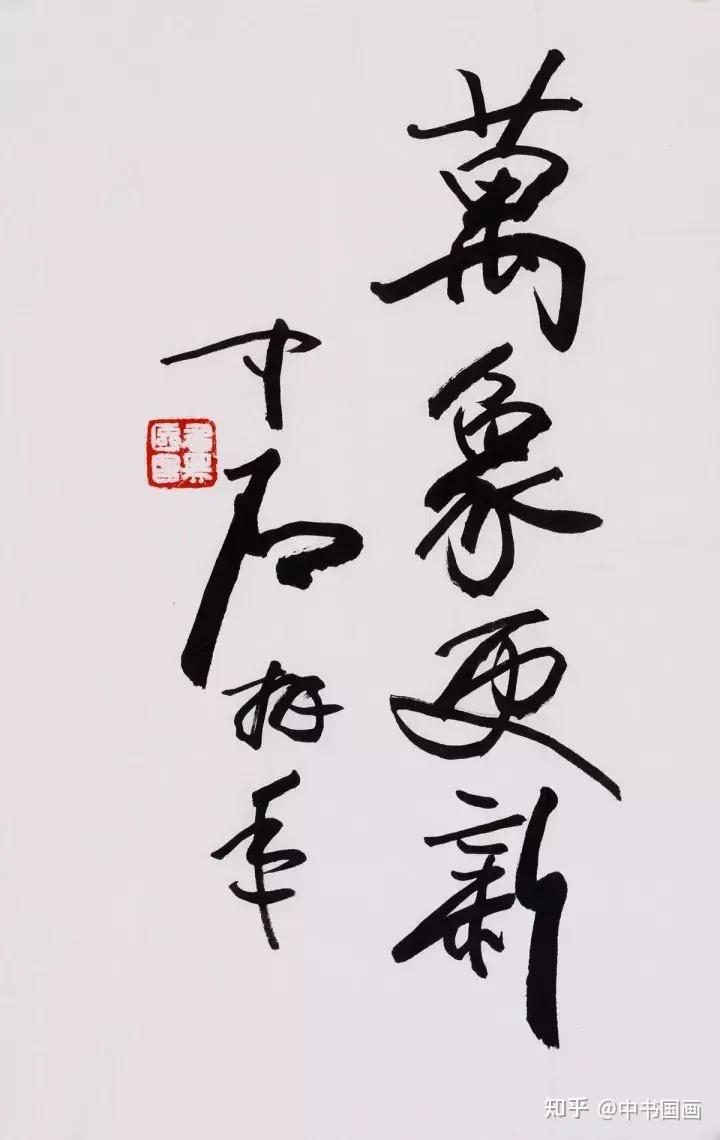 萬象更新
中石拜年
知乎 @中书国画